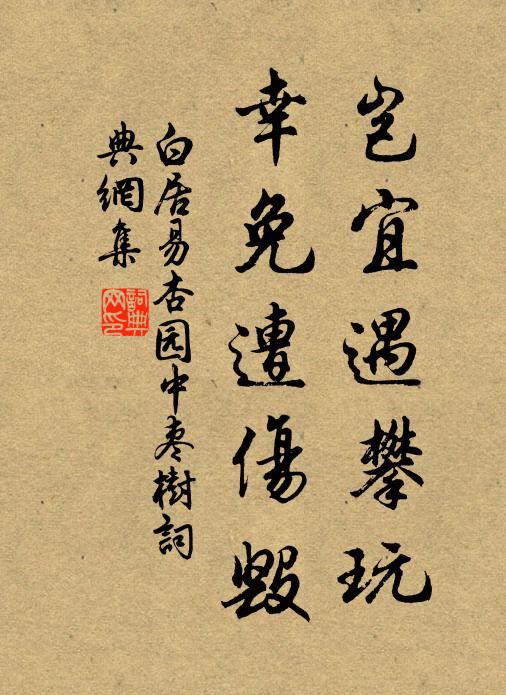 岂宜遇攀玩
幸免遭傷毀
白居易杏园中枣樹詞
典網集
詞典網印